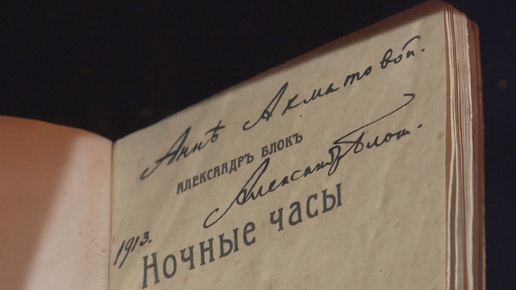 Аннѣ Ахматовой.
АЛЕКСАНДРЪ БЛОКЪ
Александръ Блок.
1913.
Ночные часы